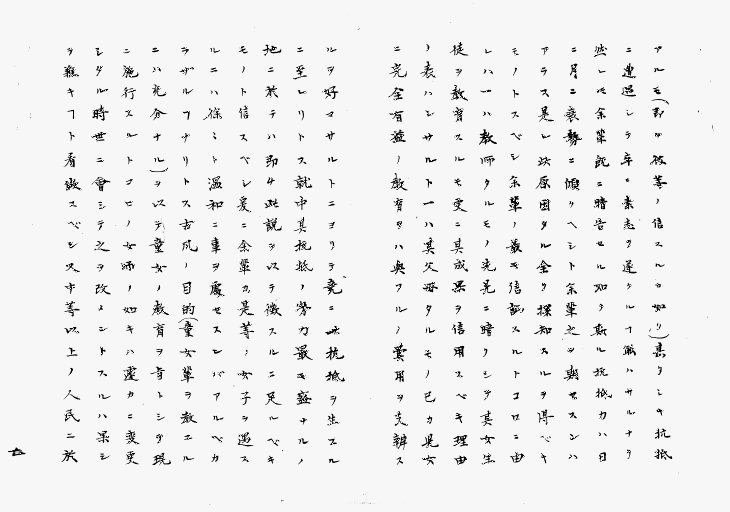 アルモ(即チ彼等ノ信スルカ如リ)甚タシキ抗抵
ニ遭遇シテ卒ニ素志ヲ達シルヿ能ハサルナラ
然レ𪜈余輩既ニ暗告セル如ク斯ル抗抵力ハ日
ニ月ニ衰勢ニ傾クヘシト余輩之ヲ與セスンハ
アラス是レ此原因タル全ク探知スルヲ得ベキ
モノトスベシ余輩ノ最モ信認スルトコロニ由
レハ一ハ教師タルモノ先見ニ暗クシテ其女生
徒ヲ教育スルモ更ニ其成果ヲ信用スベキ理由
ノ表ハレサルト一ハ其父母タルモノ己カ児女
ニ完全有益ノ教育ヲハ與フルノ費用ヲ支辨ス
ルヲ好マサルトニヨリテ竟ニ此抗抵ヲ生スル
ニ至レリトス就中其抗抵ノ勢力最モ盛ナルノ
地ニ於テハ即チ此説ヲ以テ徴スルニ足ルベキ
モノト信スベシ爰ニ余輩カ是等ノ女子ヲ遇ス
ルニハ徐ミト温和ニ事ヲ處セスンバアルベカ
ラザルヿナリトス古風ノ目的(童女輩ヲ教エル
ニハ充分ナル)ヲ以テ童女ノ教育ヲ旨トシタ現
ニ施行スルトコロノ女師ノ如キハ遽カニ變更
シタル時世ニ會シテ之ヲ改メントスルハ果シ
テ難キヿト看做スベシ又中等以上ノ人民ニ於
五